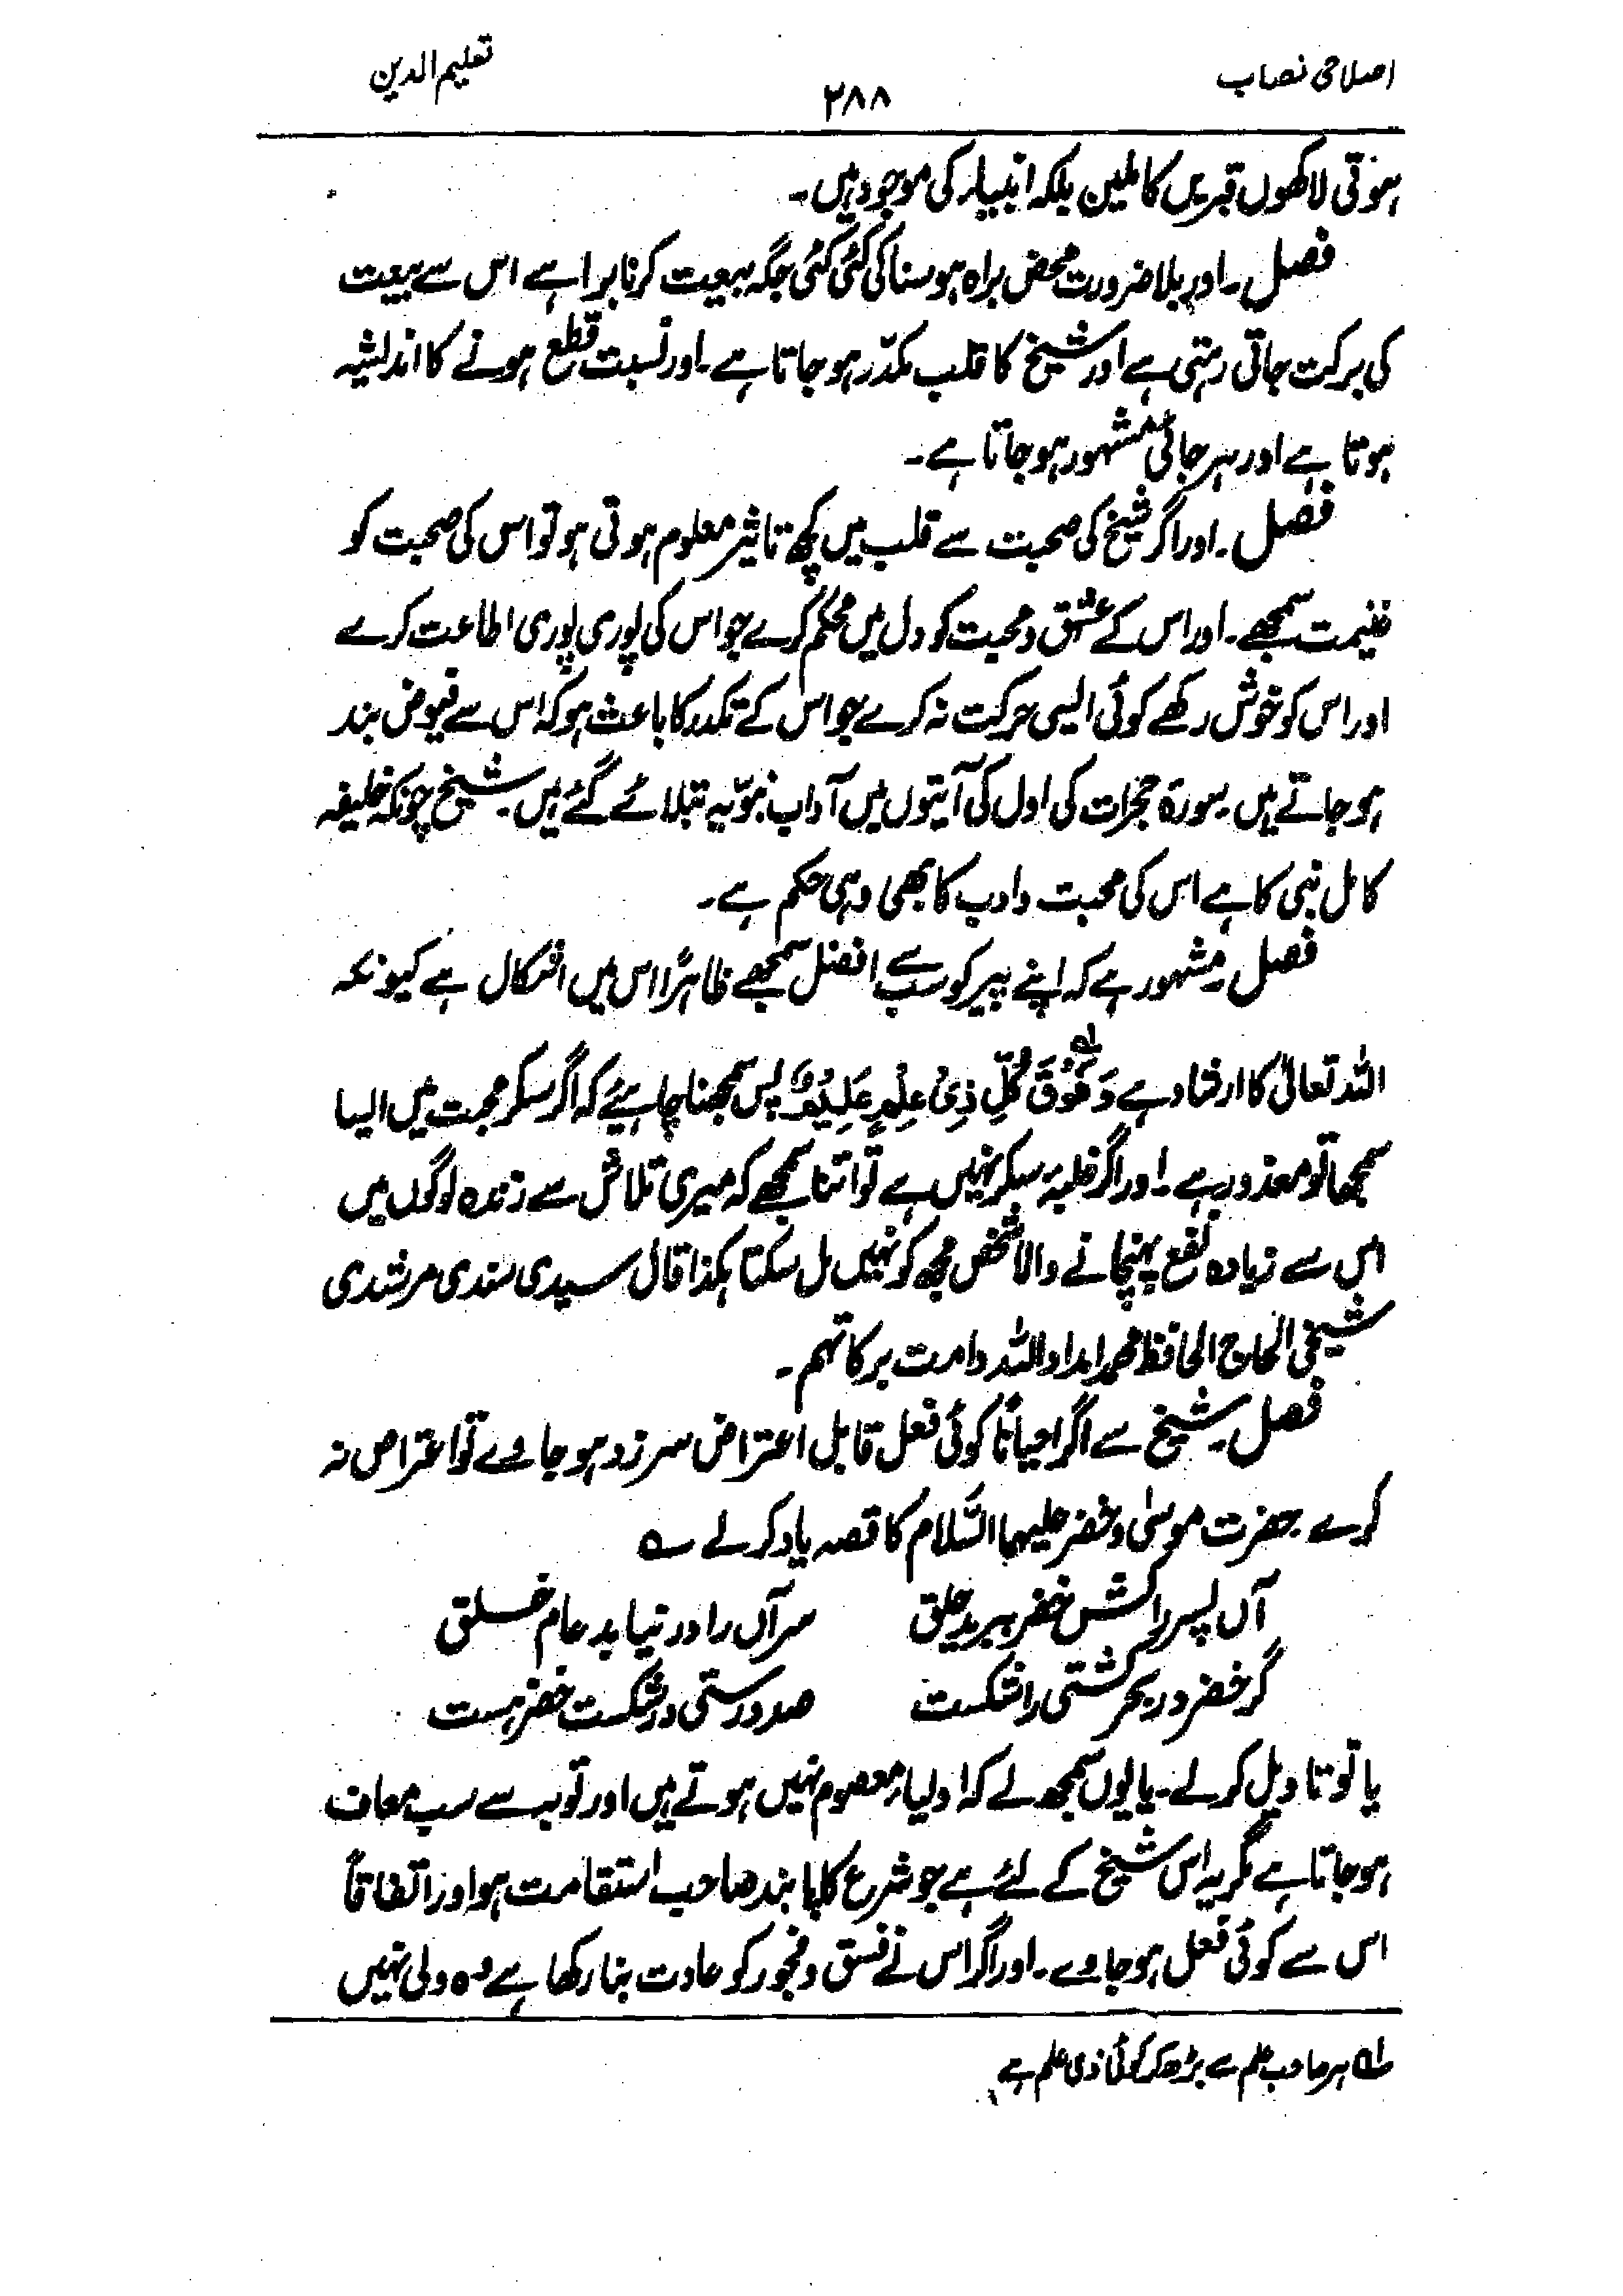 اصلاحی نصاب ۲۸۸ تعلیم الدین
ہوتی لاکھوں قبریں کاملین بلکہ انبیاء کی موجود ہیں۔
فصل۔ اور بلا ضرورت محض براہ ہوسنا کی کئی کئی جگہ بیعت کرنا برا ہے اس سے بیعت
کی برکت جاتی رہتی ہے اور شیخ کا قلب مکدّر ہو جاتا ہے۔ اور نسبت قطع ہونے کا اندیشہ
ہوتا ہے اور ہر جائی مشہور ہو جاتا ہے۔
فصل۔ اور اگر شیخ کی صحبت سے قلب میں کچھ تاثیر معلوم ہوتی ہو تو اس کی صحبت کو
غنیمت سمجھے۔ اور اس کے عشق و محبت کو دل میں محکم کرے جو اس کی پوری پوری اطاعت کرے
اور اس کو خوش رکھے کوئی ایسی حرکت نہ کرے جو اس کے تکدر کا باعث ہو کہ اس سے فیوض بند
ہو جاتے ہیں۔ سورۃ حجرات کی اول کی آیتوں میں آداب نبوّیہ بتلائے گئے ہیں۔ شیخ چونکہ خلیفہ
کامل نبی کا ہے اس کی محبت و ادب کا بھی وہی حکم ہے۔
فصل۔ مشہور ہے کہ اپنے پیر کو سب سے افضل سمجھے ظاہرًا اس میں اشکال ہے کیونکہ
اللہ تعالیٰ کا ارشاد ہے وَفَوْقَ کُلِّ ذِیْ عِلْمٍ عَلِیْمٌ لہ پس سمجھنا چاہیئے کہ اگر سکر محبت میں ایسا
سمجھا تو معذور ہے۔ اور اگر غلبۂ سکر نہیں ہے تو اتنا سمجھے کہ میری تلاش سے زندہ لوگوں میں
اس سے زیادہ نفع پہنچانے والا شخص مجھ کو نہیں مل سکتا ہکذا قال سیدی سندی مرشدی
شیخی الحاج الحافظ محمد امداد اللہ دامت برکاتہم۔
فصل۔ شیخ سے اگر احیانًا کوئی فعل قابل اعتراض سرزد ہو جاوے تو اعتراض نہ
کرے۔ حضرت موسیٰ و خضر علیہما السَّلام کا قصہ یاد کر لے ؎
آں پسر را کش خضر ببرید حلق سر آں را در نیابد عام خلق
گر خضر در بحر کشتی را شکست صد درستی در شکست خضر ہست
یا تو تاویل کر لے۔ یا یوں سمجھ لے کہ اولیاء معصوم نہیں ہوتے ہیں اور توبہ سے سب معاف
ہو جاتا ہے مگر یہ اس شیخ کے لئے ہے جو شرع کا پابند صاحب استقامت ہو اور اتفاقاً
اس سے کوئی فعل ہو جاوے۔ اور اگر اس نے فسق و فجور کو عادت بنا رکھا ہے وہ ولی نہیں
لہ ہر صاحب علم سے بڑھ کر کوئی ذی علم ہے